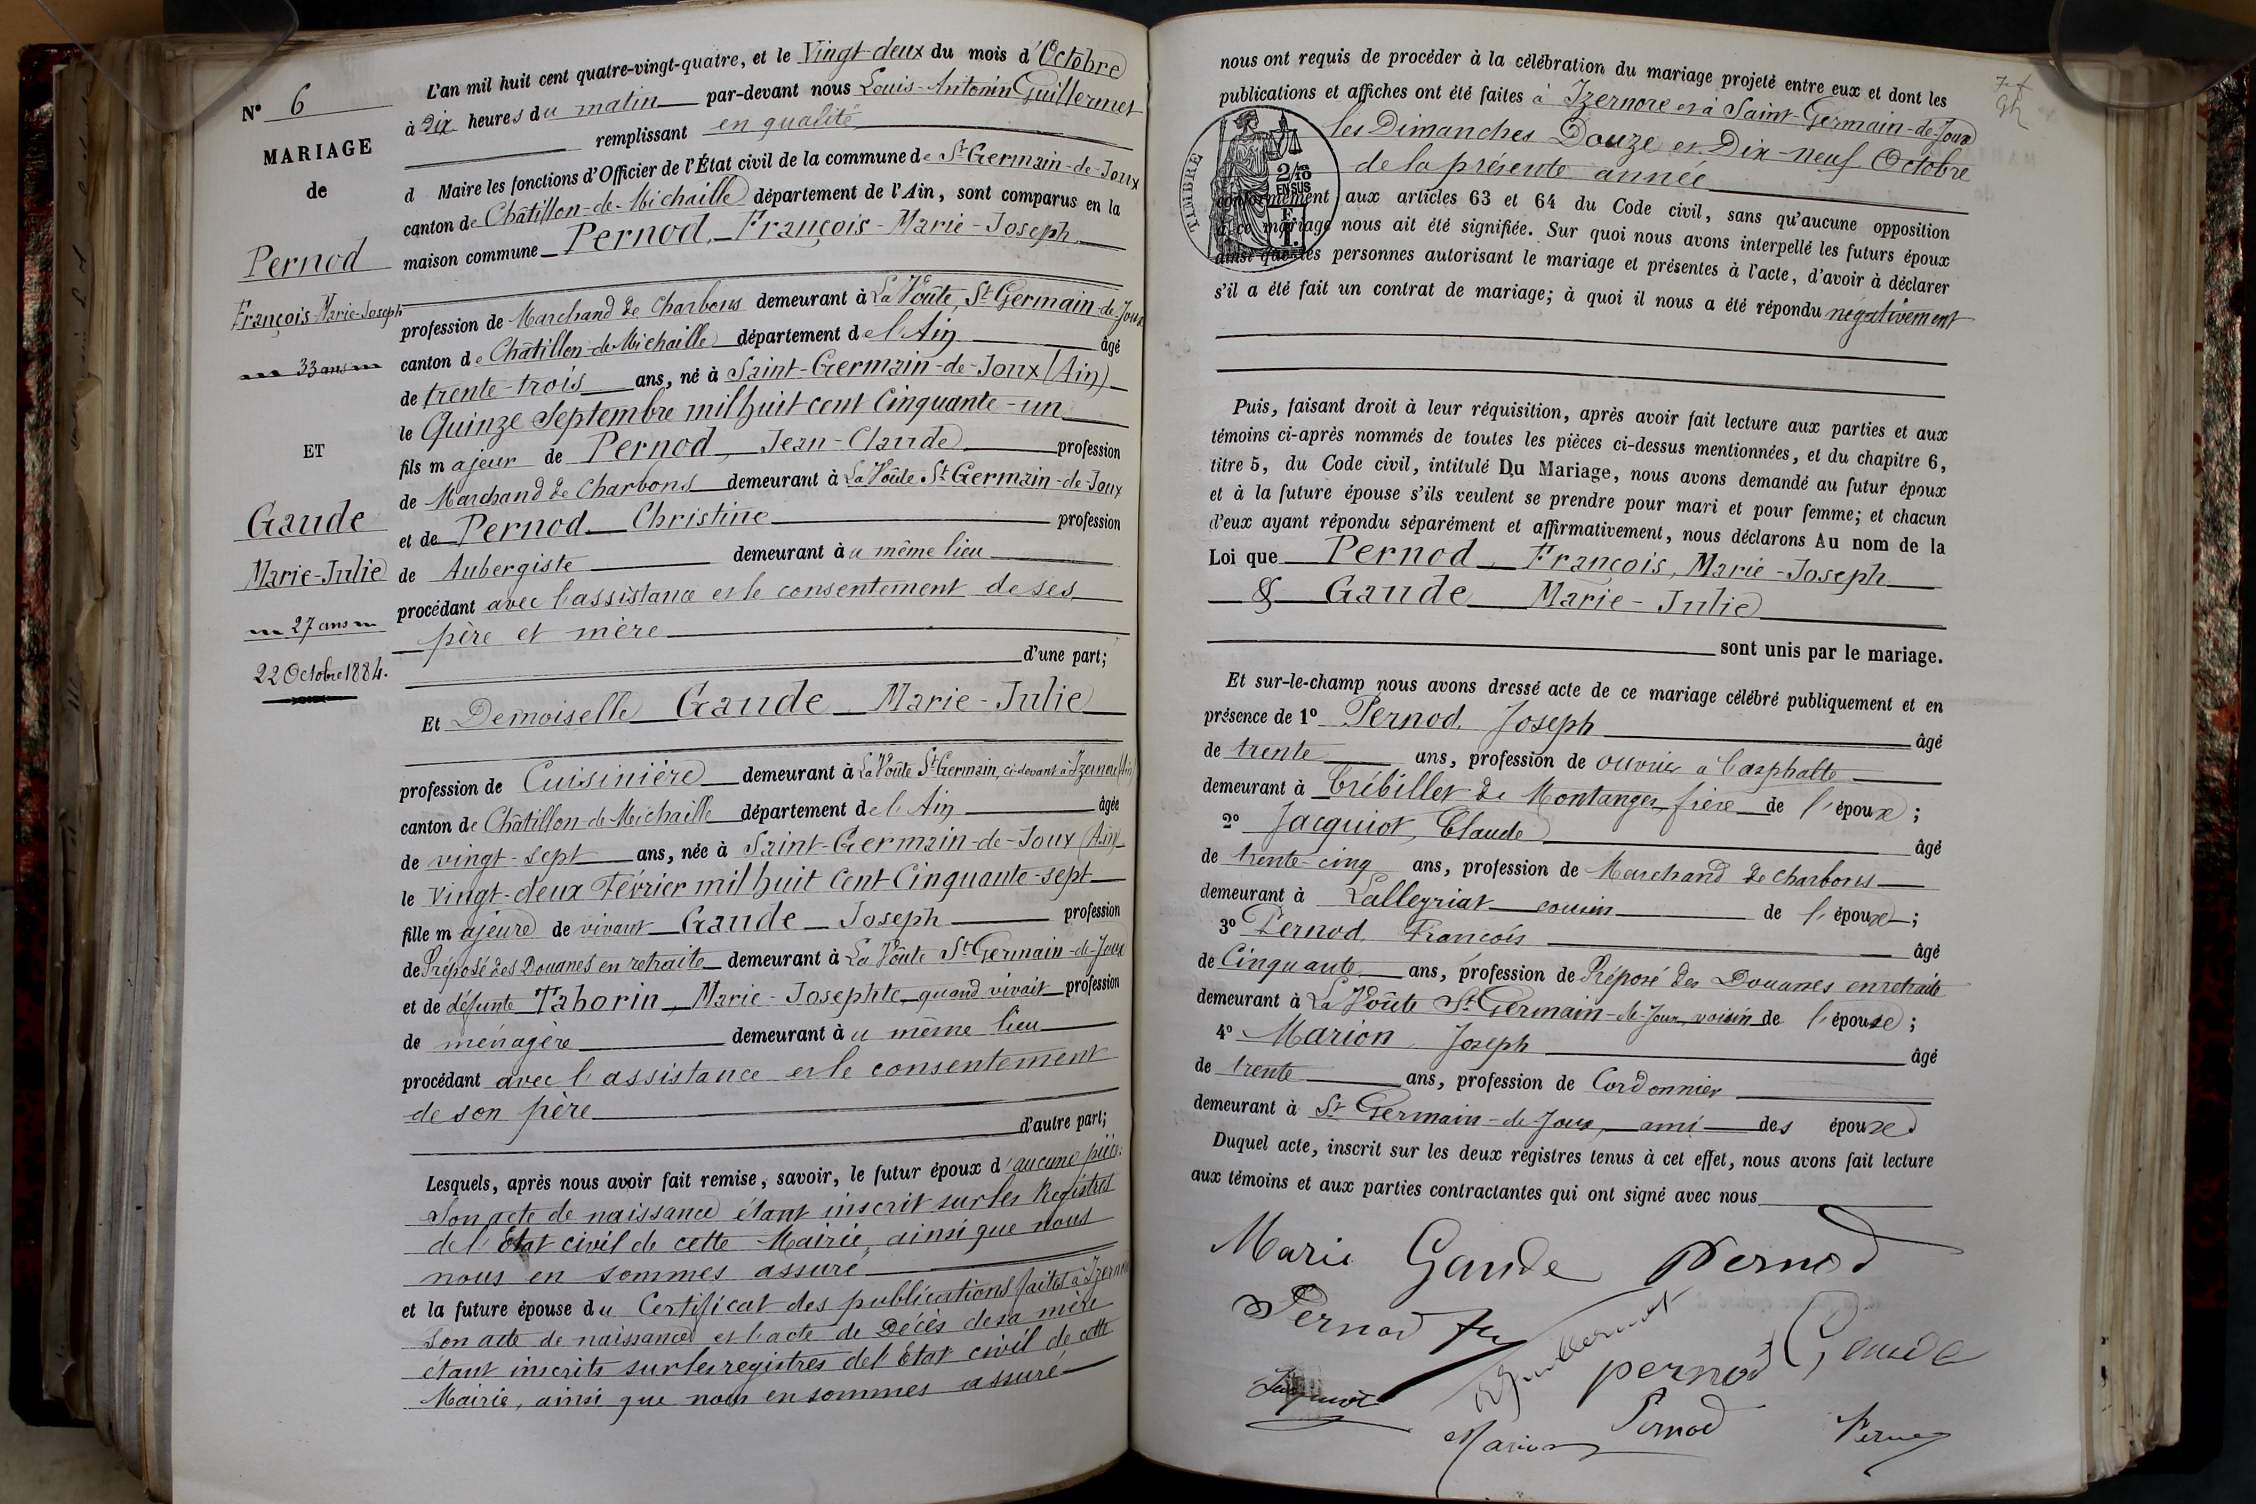 N° 6
MARIAGE
de
Pernod
François-Marie-Joseph
33 ans
ET
Gaude
Marie-Julie
27 ans
22 Octobre 1884.
L'an mil huit cent quatre-vingt-quatre, et le Vingt-deux du mois d'Octobre
à Dix heures du matin par-devant nous Louis-Antonin Guillermet
remplissant en qualité
d Maire les fonctions d'Officier de l'État civil de la commune de St Germain-de-Joux
canton de Châtillon-de-Michaille département de l'Ain, sont comparus en la
maison commune Pernod, François-Marie-Joseph
profession de Marchand de Charbons demeurant à La Voûte, St Germain-de-Joux
canton de Châtillon-de-Michaille département de l'Ain âgé
de trente-trois ans, né à Saint-Germain-de-Joux (Ain)
le Quinze Septembre mil huit cent Cinquante-un
fils majeur de Pernod, Jean-Claude profession
de Marchand de Charbons demeurant à La Voûte St Germain-de-Joux
et de Pernod Christine profession
de Aubergiste demeurant à u même lieu
procédant avec l'assistance et le consentement de ses
père et mère
d'une part;
Et Demoiselle Gaude Marie-Julie
profession de Cuisinière demeurant à La Voûte St Germain, ci-devant à Izernore (Ain)
canton de Châtillon-de-Michaille département de l'Ain âgée
de vingt-sept ans, née à Saint-Germain-de-Joux (Ain)
le Vingt-deux Février mil huit Cent Cinquante-sept
fille majeure de vivant Gaude Joseph profession
de Préposé des Douanes en retraite demeurant à La Voûte St Germain-de-Joux
et de défunte Taborin, Marie-Josephte quand vivait profession
de ménagère demeurant à u même lieu
procédant avec l'assistance et le consentement
de son père
d'autre part;
Lesquels, après nous avoir fait remise, savoir, le futur époux d'aucune pièce
Son acte de naissance étant inscrit sur les Registres
de l'Etat civil de cette Mairie, ainsi que nous
nous en sommes assuré
et la future épouse du Certificat des publications faites à Izernore
Son acte de naissance et l'acte de Décès de sa mère
étant inscrits sur les registres de l'Etat civil de cette
Mairie, ainsi que nous en sommes assuré
nous ont requis de procéder à la célébration du mariage projeté entre eux et dont les
publications et affiches ont été faites à Izernore et à Saint-Germain-de-Joux
les Dimanches Douze et Dix-neuf Octobre
de la présente année
TIMBRE
2/10
EN SUS
conformément aux articles 63 et 64 du Code civil, sans qu'aucune opposition
à ce mariage nous ait été signifiée. Sur quoi nous avons interpellé les futurs époux
ainsi que les personnes autorisant le mariage et présentes à l'acte, d'avoir à déclarer
s'il a été fait un contrat de mariage; à quoi il nous a été répondu négativement
Puis, faisant droit à leur réquisition, après avoir fait lecture aux parties et aux
témoins ci-après nommés de toutes les pièces ci-dessus mentionnées, et du chapitre 6,
titre 5, du Code civil, intitulé Du Mariage, nous avons demandé au futur époux
et à la future épouse s'ils veulent se prendre pour mari et pour femme; et chacun
d'eux ayant répondu séparément et affirmativement, nous déclarons Au nom de la
Loi que Pernod, François, Marie-Joseph
& Gaude Marie-Julie
sont unis par le mariage.
Et sur-le-champ nous avons dressé acte de ce mariage célébré publiquement et en
présence de 1° Pernod, Joseph âgé
de trente ans, profession de ouvrier à l'asphalte
demeurant à Trébillet de Montanges, frère de l'époux;
2° Jacquiot, Claude âgé
de trente-cinq ans, profession de Marchand de Charbons
demeurant à Lalleyriat cousin de l'époux;
3° Pernod, François âgé
de Cinquante ans, profession de Préposé des Douanes en retraite
demeurant à La Voûte St Germain-de-Joux, voisin de l'épouse;
4° Marion, Joseph âgé
de trente ans, profession de Cordonnier
demeurant à St Germain-de-Joux, ami des époux.
Duquel acte, inscrit sur les deux régistres tenus à cet effet, nous avons fait lecture
aux témoins et aux parties contractantes qui ont signé avec nous
Marie Gaude Pernod
Pernod
Guillermet
pernod Gaude
Jacquiot
Marion
Pernod